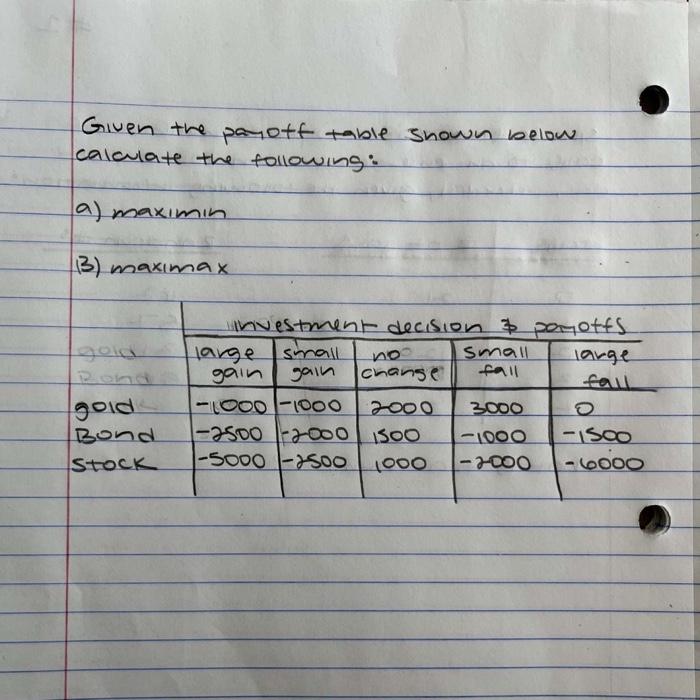 Given the payoff table shown below
calculate the following:
a) maximin
B) maximax
investment decision & payoffs
gold large gain small gain no change small fall large fall
Bond
gold -1000 -1000 2000 3000 0
Bond -2500 -2000 1500 -1000 -1500
Stock -5000 -2500 1000 -2000 -6000